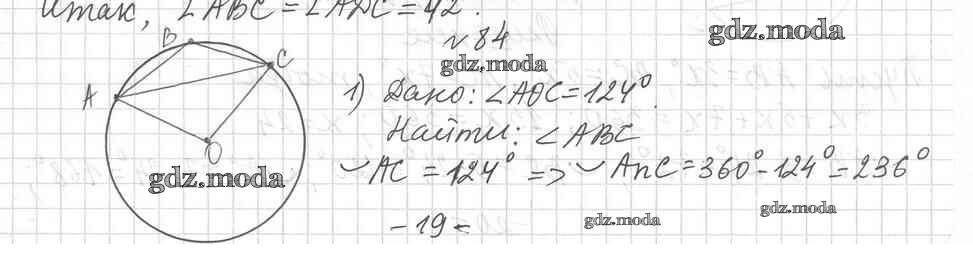 Итак, ∠ABC = ∠ADC = 42°.
№ 84
gdz.moda
gdz.moda
1) Дано: ∠AOC = 124°.
Найти: ∠ABC
◡AC = 124° => ◡AnC = 360° - 124° = 236°
B
C
A
O
gdz.moda
gdz.moda
gdz.moda
- 19 -